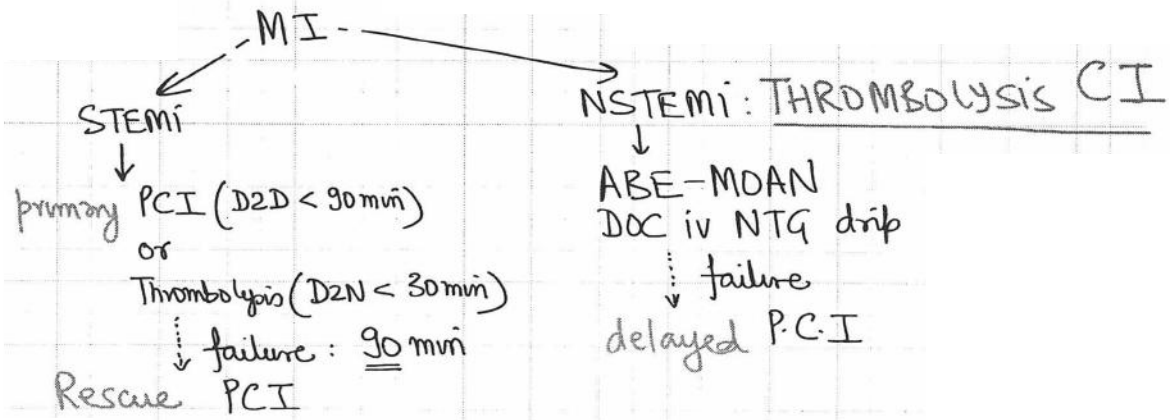 MI
STEMi
primary PCI (D2D < 90 min)
or
Thrombolysis (D2N < 30 min)
failure : 90 min
Rescue PCI
NSTEMi : THROMBOLYSIS CI
ABE-MOAN
DOC iv NTG drip
failure
delayed P.C.I